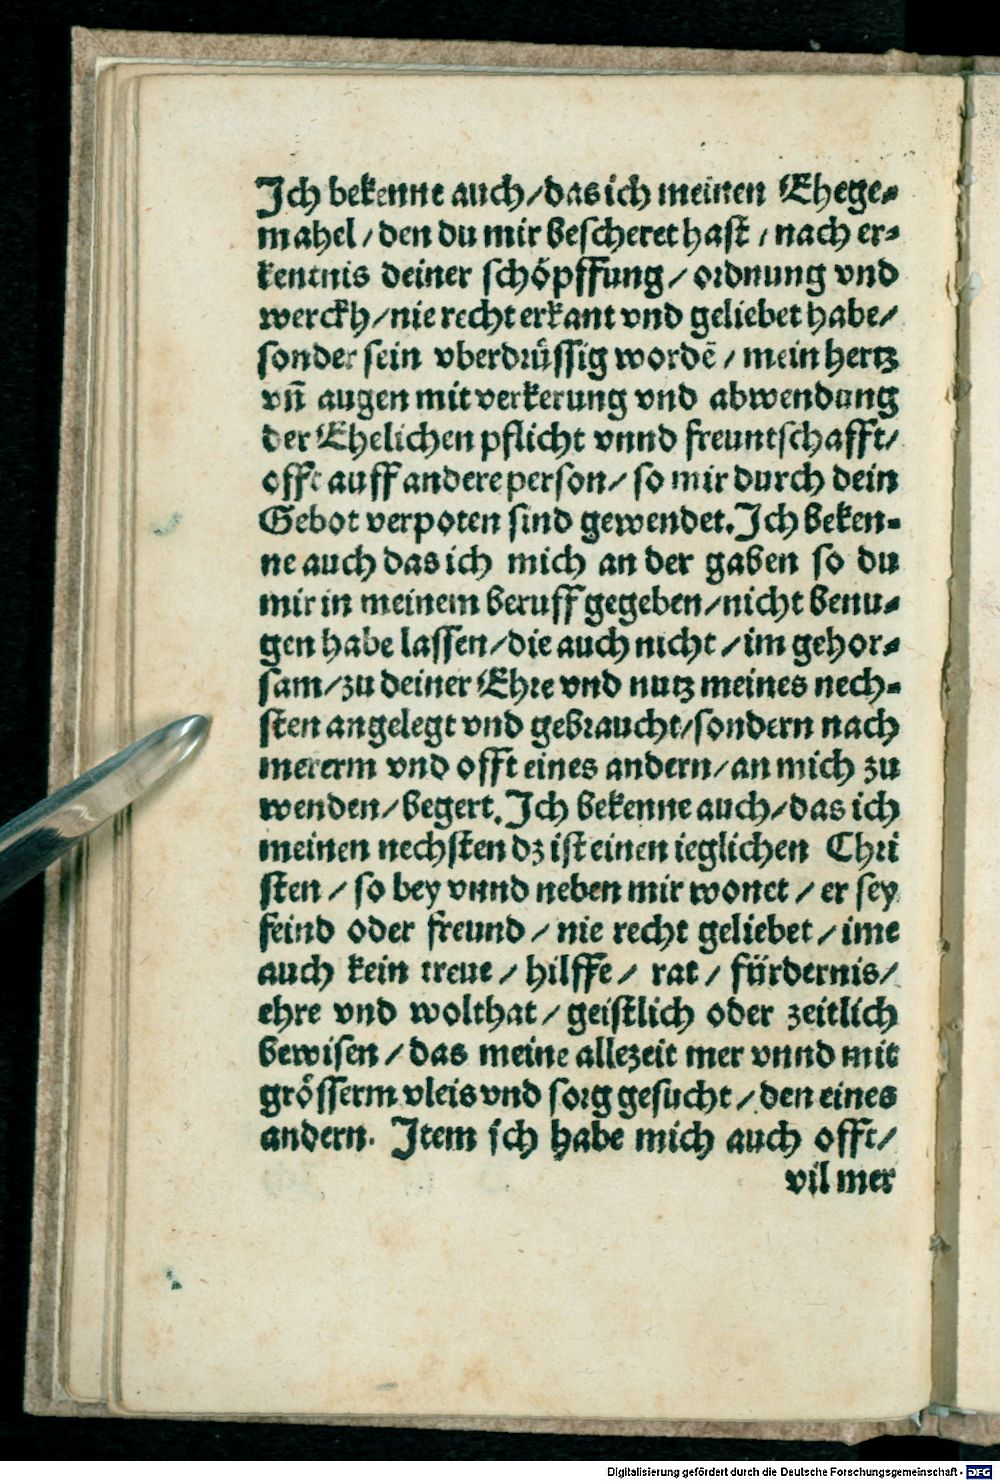 Ich bekenne auch/das ich meinen Ehege⸗
mahel/den du mir bescheret hast/nach er⸗
kentnis deiner schöpffung/ordnung vnd
werckh/nie recht erkant vnd geliebet habe/
sonder sein vberdrüssig wordē/mein hertz
vn̄ augen mit verkerung vnd abwendung
der Ehelichen pflicht vnnd freuntschafft/
offt auff andere person/so mir durch dein
Gebot verpoten sind gewendet. Ich beken⸗
ne auch das ich mich an der gaben so du
mir in meinem beruff gegeben/nicht benu⸗
gen habe lassen/die auch nicht/im gehor⸗
sam/zu deiner Ehre vnd nutz meines nech⸗
sten angelegt vnd gebraucht/sondern nach
mererm vnd offt eines andern/an mich zu
wenden/begert. Ich bekenne auch/das ich
meinen nechsten dz ist einen ieglichen Chri
sten/so bey vnnd neben mir wonet/er sey
feind oder freund/nie recht geliebet/ime
auch kein treue/hilffe/rat/fürdernis/
ehre vnd wolthat/geistlich oder zeitlich
bewisen/das meine allezeit mer vnnd mit
grösserm vleis vnd sorg gesucht/den eines
andern. Item ich habe mich auch offt/
vil mer
Digitalisierung gefördert durch die Deutsche Forschungsgemeinschaft - DFG